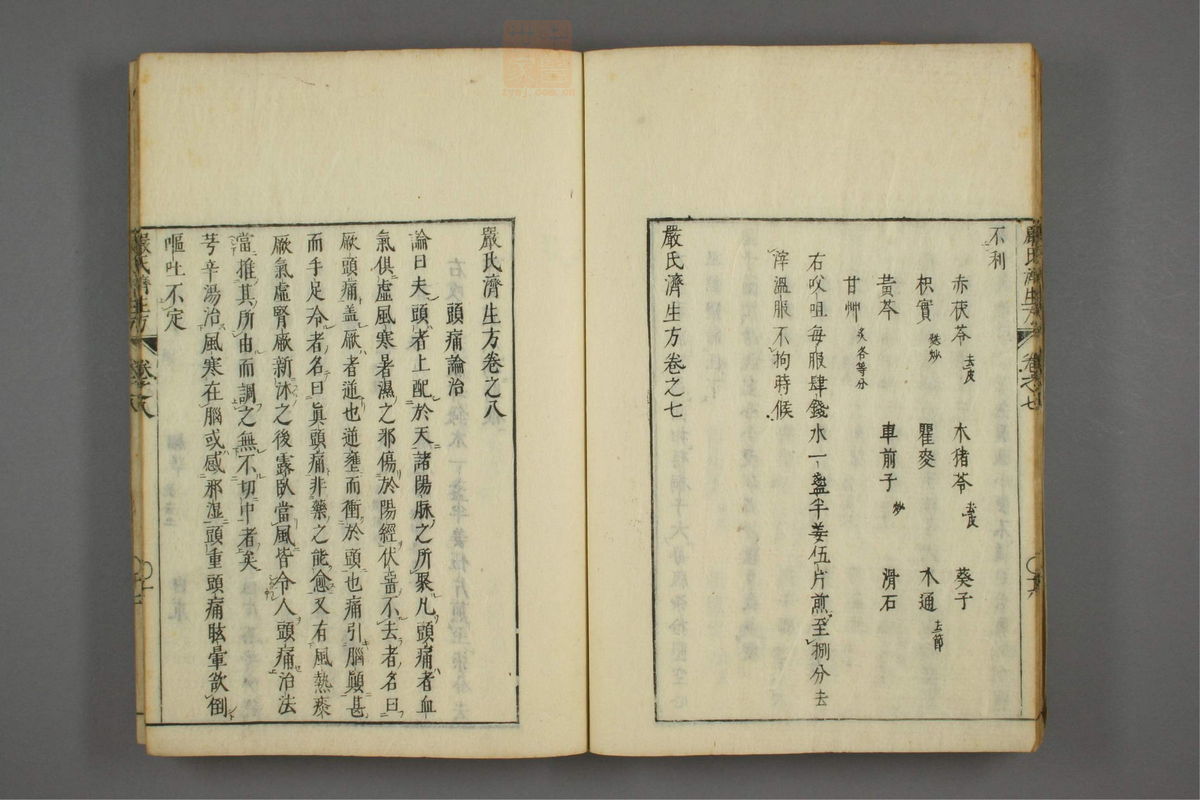 嚴氏濟生方 卷之七
不利
赤茯苓去皮 木猪苓去皮 葵子
枳實麩炒 瞿麥 木通去節
黃芩 車前子炒 滑石
甘艸炙各等分
右㕮咀每服肆錢水一盞半姜伍片煎至捌分去
滓溫服不拘時候
嚴氏濟生方卷之七
嚴氏濟生方卷之八
頭痛論治
論曰夫頭者上配於天諸陽脉之所聚凡頭痛者血
氣俱虛風寒暑濕之邪傷於陽經伏畱不去者名曰
厥頭痛盖厥者逆也逆壅而衝於頭也痛引腦顚甚
而手足冷者名曰眞頭痛非藥之能愈又有風熱痰
厥氣虛腎厥新沐之後露臥當風皆令人頭痛治法
當推其所由而調之無不切中者矣
芎辛湯治風寒在腦或感邪湿頭重頭痛眩暈欲倒
嘔吐不定
嚴氏濟生方 卷之八